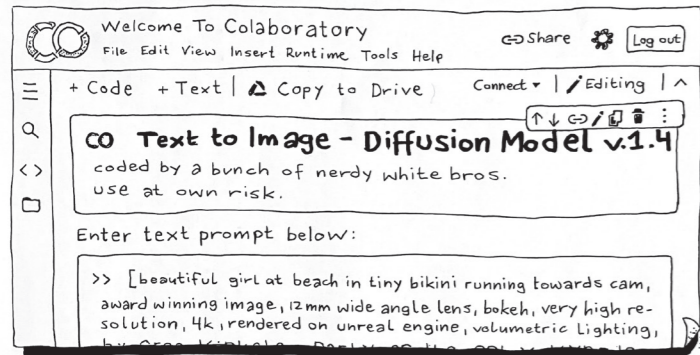 Welcome To Colaboratory
File Edit View Insert Runtime Tools Help
Share
Log out
+ Code + Text | Copy to Drive
Connect | Editing
CO Text to Image - Diffusion Model v.1.4
coded by a bunch of nerdy white bros.
use at own risk.
Enter text prompt below:
>> [beautiful girl at beach in tiny bikini running towards cam,
award winning image, 12mm wide angle lens, bokeh, very high re-
solution, 4k, rendered on unreal engine, volumetric Lighting,